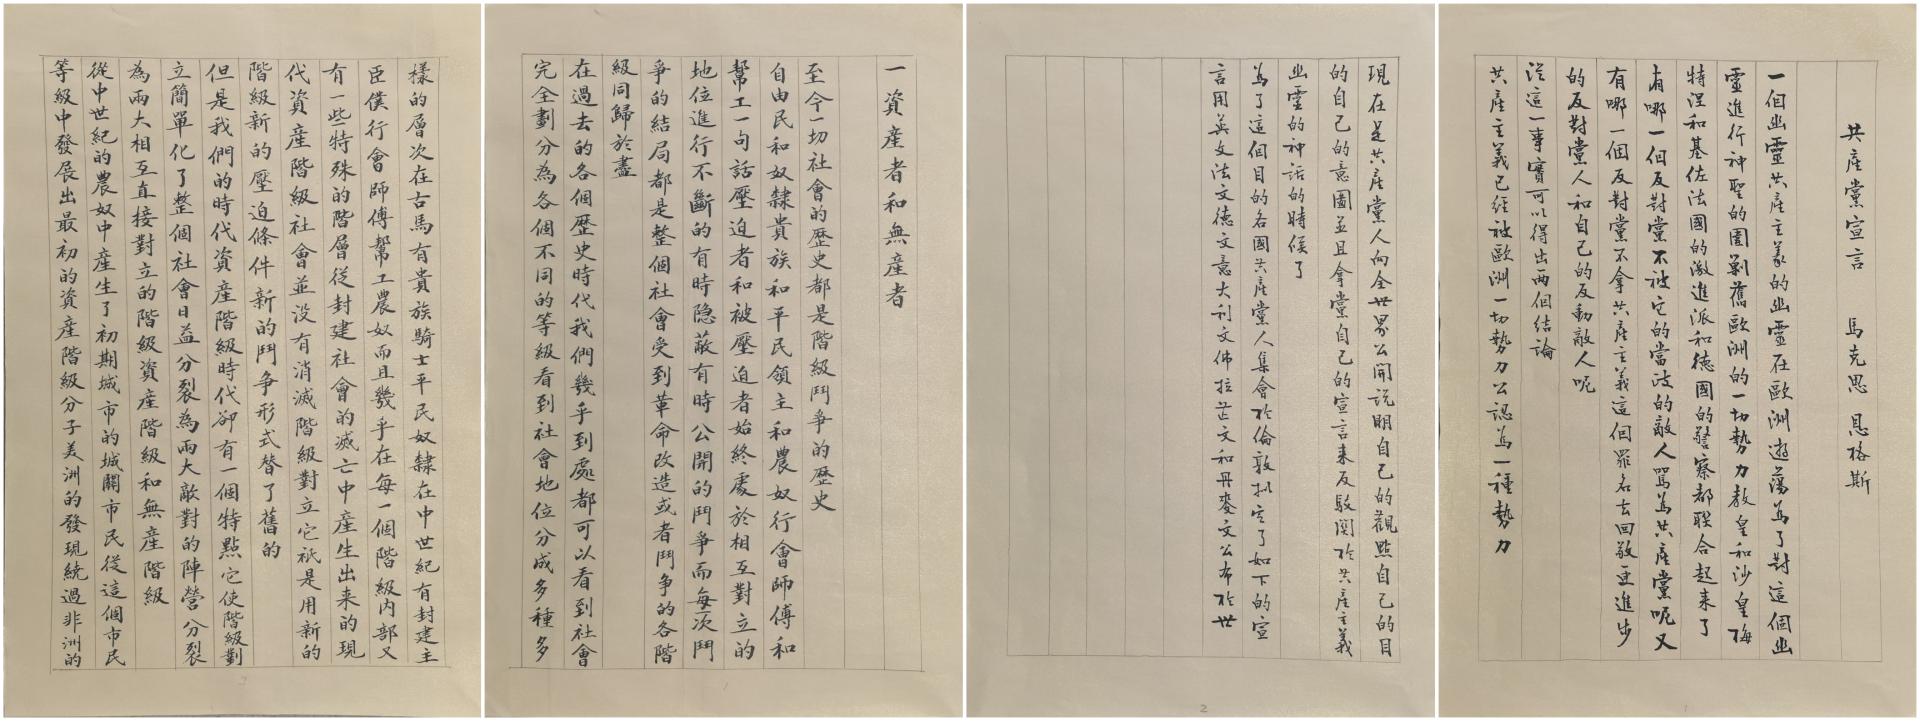 共產黨宣言 馬克思 恩格斯
一個幽靈共產主義的幽靈在歐洲遊蕩為了對這個幽
靈進行神聖的圍剿舊歐洲的一切勢力教皇和沙皇梅
特涅和基佐法國的激進派和德國的警察都聯合起來了
有哪一個反對黨不被它的當政的敵人罵為共產黨呢又
有哪一個反對黨不拿共產主義這個罪名去回敬更進步
的反對黨人和自己的反動敵人呢
從這一事實可以得出兩個結論
共產主義已經被歐洲一切勢力公認為一種勢力
現在是共產黨人向全世界公開說明自己的觀點自己的目
的自己的意圖並且拿黨自己的宣言來反駁關於共產主義
幽靈的神話的時候了
為了這個目的各國共產黨人集會於倫敦擬定了如下的宣
言用英文法文德文意大利文佛拉芒文和丹麥文公布於世
2
1
一資產者和無產者
至今一切社會的歷史都是階級鬥爭的歷史
自由民和奴隸貴族和平民領主和農奴行會師傅和
幫工一句話壓迫者和被壓迫者始終處於相互對立的
地位進行不斷的有時隐蔽有時公開的鬥爭而每次鬥
爭的結局都是整個社會受到革命改造或者鬥爭的各階
級同歸於盡
在過去的各個歷史時代我們幾乎到處都可以看到社會
完全劃分為各個不同的等級看到社會地位分成多種多
樣的層次在古馬有貴族騎士平民奴隸在中世紀有封建主
臣僕行會師傅幫工農奴而且幾乎在每一個階級內部又
有一些特殊的階層從封建社會的滅亡中產生出来的現
代資產階級社會並没有消滅階級對立它祇是用新的
階級新的壓迫條件新的鬥爭形式替了舊的
但是我們的時代資產階級時代卻有一個特點它使階級對
立簡單化了整個社會日益分裂為兩大敵對的陣營分裂
為兩大相互直接對立的階級資產階級和無產階級
從中世紀的農奴中產生了初期城市的城關市民從這個市民
等級中發展出最初的資產階級分子美洲的發現繞過非洲的